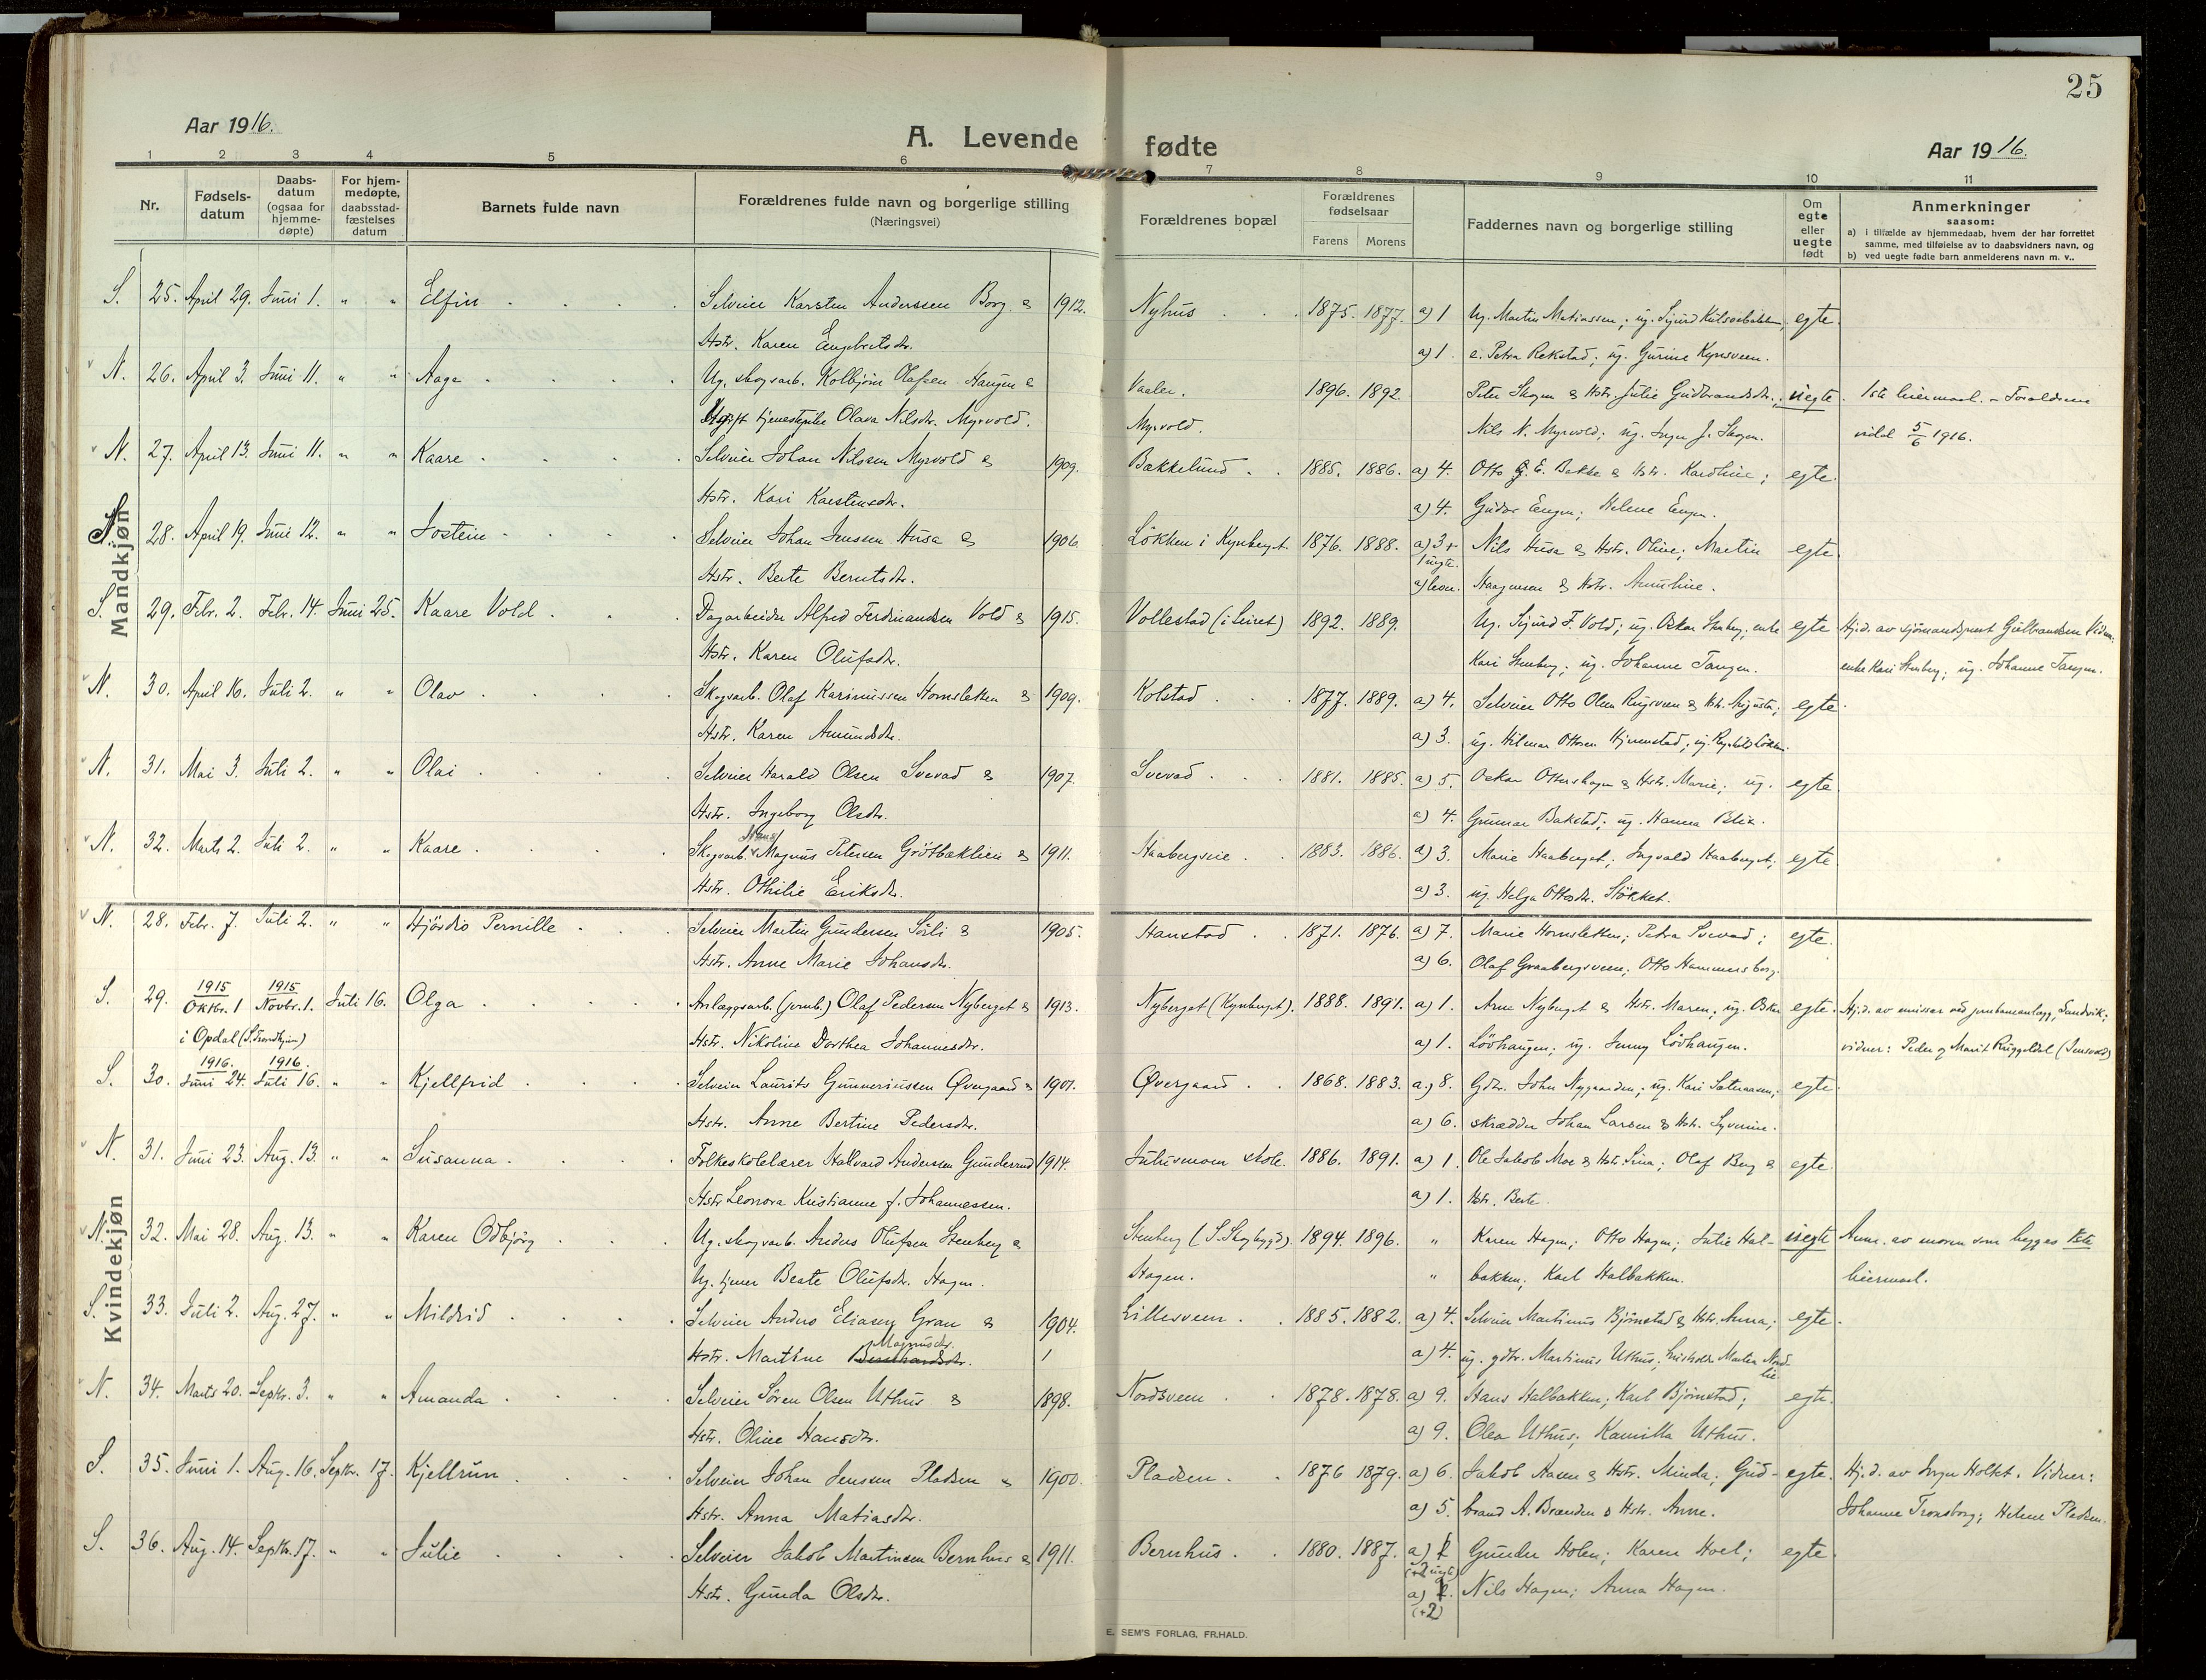 25
Aar 1916.
A. Levende fødte
Aar 1916.
1 2 3 4 5 6 7 8 9 10 11
Nr.
Fødsels-datum
Daabs-datum (ogsaa for hjemme-døpte)
For hjem-medøpte, daabsstad-fæstelses datum
Barnets fulde navn
Forældrenes fulde navn og borgerlige stilling
(Næringsvei)
Forældrenes bopæl
Forældrenes fødselsaar
Farens Morens
Faddernes navn og borgerlige stilling
Om egte eller uegte født
Anmerkninger
saasom:
a) i tilfælde av hjemmedaab, hvem der har forrettet samme, med tilføielse av to daabsvidners navn, og
b) ved uegte fødte barn anmelderens navn m. v..
Mandkjøn
S. 25. April 29. Juni 1. " " Elfin Selveier Karsten Anderssen Borg & 1912. Nyhus 1875. 1877. a) 1 Ug. Martin Matiassen; ug. Sigurd egte.
Hstr. Karen Engebretsdr. a) 1. e. Petra Rekstad; ug. Gurine Kynsveen.
N. 26. April 3. Juni 11. " " Aage Ug. skogsarb. Kolbjörn Olafsen Haugen & Vaaler. 1896. 1892. Peter Skogen & Hstr. Julie Gudbrandsdr.; uegte. 1ste leiermaal. - Forældrene
Ugift tjenestepike Olava Nilsdr. Myrvold. Myrvold. Nils N. Myrvold; ug. Inger J. Skogen. viedd 5/6 1916.
N. 27. April 13. Juni 11. " " Kaare Selveier Johan Nilssen Myrvold & 1909. Bakkelund 1885. 1886. a) 4. Otto E. Bakke & Hstr. Karoline; egte.
Hstr. Kari Karstensdr. a) 4. Gudor Engen; Helene Engen.
N. 28. April 19. Juni 12. " " Jostein Selveier Johan Jenssen Husa & 1906. Løkken i Kynberget. 1876. 1888. a) 3 + 1 uegte. Nils Husa & Hstr. Oline; Martin egte
Hstr. Berte Berntsdr. a) leve. Haagensen & Hstr.
S. 29. Febr. 2. Febr. 14. Juni 25. Kaare Vold Dagarbeider Alfred Ferdinandsen Vold & 1915. Vollestad (i Leiret) 1892. 1889. Ug. Sigurd F. Vold; ug. Oskar Stenberg; enke egte Hj.d. av sjømandsprest Gulbrandsen Vidner:
Hstr. Karen Olufsdr. Kari Stenberg; ug. Johanne Tangen. enke Kari Stenberg; ug. Johanne Tangen.
N. 30. April 16. Juli 2. " " Olav Skogsarb. Olaf Karinussen Hornsletten & 1909. Kolstad 1877. 1889. a) 4. Selveier Otto Olsen Rugsveen & Hstr. Augusta; egte
Hstr. Karen Amundsdr. a) 3. ug. Hilmar Ottosen Hjernstad; ug. Løkken.
N. 31. Mai 3. Juli 2. " " Olai Selveier Harald Olsen Svevad & 1907. Svevad 1881. 1885. a) 5. Oskar Otterskogen & Hstr. Marie; ug. egte
Hstr. Ingeborg Olsdr. a) 4. Gunnar Bakstad; ug. Hanna Blix.
N. 32. Marts 2. Juli 2. " " Kaare Skogsarb. Magnus Petersen Grötbæklien & 1911. Haabergseie 1883. 1886. a) 3. Marie Haaberget; Ingvald Haaberget; egte
Hstr. Othilie Eriksdr. a) 3. ug. Helga Ottosdr. Støkket.
Kvindekjøn
N. 28. Febr. 7. Juli 2. " " Hjördis Pernille Selveier Martin Gundersen Söli & 1905. Hanstad 1871. 1876. a) 7. Marie Hornsletten; Petra Svevad; egte.
Hstr. Anne Marie Johansdr. a) 6. Olaf Graabergsveen; Otto Hammersborg.
S. 29. 1915 Oktbr. 1 1915 Novbr. 1. Juli 16. Olga Anlægsarb. (jernb.) Olaf Pedersen Nyberget & 1913. Nyberget (Kynberget). 1888. 1891. a) 1. Arne Nyberget & Hstr. Maren; ug. Oskar egte. Hj.d. av emissær ved jernbaneanlægg, Sandvik;
i Opdal (S. Trondhjem) Hstr. Nikoline Dorthea Johannesdr. a) 1. Lövhaugen; ug. Jenny Lövhaugen. vidner: Peder og Marit Ruggeldal
S. 30. 1916. Juni 24. 1916. Juli 16. " " Kjellfrid Selveier Laurits Gunneriussen Øvergaard & 1901. Øvergaard 1868. 1883. a) 8. Gdbr. John Nygaarden; ug. Kari Sætermoen; egte
Hstr. Anne Bertine Pedersdr. a) 6. skrædder Johan Larsen & Hstr. Syverine.
N. 31. Juni 23. Aug. 13. " " Susanna Folkeskolelærer Halvard Anderssen Gunderrud 1914. Julusmoen skole. 1886. 1891. a) 1. Ole Jakob Moe & Hstr. Lina; Olaf Berg & egte
Hstr Leonora Kristianne f. Johannessen. a) 1. Hstr. Berte.
N. 32. Mai 28. Aug. 13. " " Karen Odbjörg Ug. skogsarb. Anders Olufsen Stenberg & Stenberg (S. Skogbygd). 1894. 1896. " Karen Hagen; Otto Hagen; Julie Hal- uegte Anm. av moren som begges 1ste
Ug. tjener Beate Olufsdr. Hagen. Hagen. " bakken; Karl Halbakken. leiermaal.
S. 33. Juli 2. Aug. 27. " " Mildrid Selveier Anders Eliasen Gran & 1904. Lillesveen 1885. 1882. a) 4. Selveier Martinus Björnstad & Hstr. Anna; egte.
Hstr. Martine Magnusdr. 1 a) 4. ug. gbr. Martinus Uthus; Morten Nordlie
N. 34. Marts 20. Septbr. 3. " " Amanda Selveier Sören Olsen Uthus & 1898. Nordsveen 1878. 1878. a) 9. Hans Halbakken; Karl Björnstad; egte.
Hstr. Oline Hansdr. a) 9. Olea Uthus; Kamilla Uthus.
S. 35. Juni 1. Aug. 16. Septbr. 17. Kjellrun Selveier Johan Jenssen Pladsen & 1900. Pladsen 1876 1879. a) 6. Jakob Aasen & Hstr. Minda; Gud- egte. Hj.d. av Inger Holtet. Vidner:
Hstr. Anna Matiasdr. a) 5. brand A. Brænden & Hstr. Anne. Johanne Tronsborg; Helene Pladsen.
S. 36. Aug. 14. Septbr. 17. " " Julie Selveier Jakob Martinsen Bernhus & 1911. Bernhus 1880. 1887. a) 1 (+2 uegte) Gunder Holen; Karen Hoel; egte
Hstr. Gunda Olsdr. a) 1. (+2) Nils Hagen; Anna Hagen.
E. SEM'S FORLAG, FR.HALD.